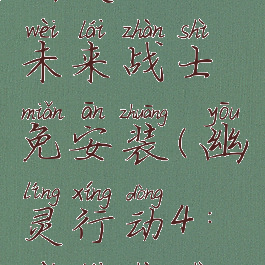 wèi lái zhàn shì
未来战士
miǎn ān zhuāng yōu
免安装(幽
líng xíng dòng
灵行动4: